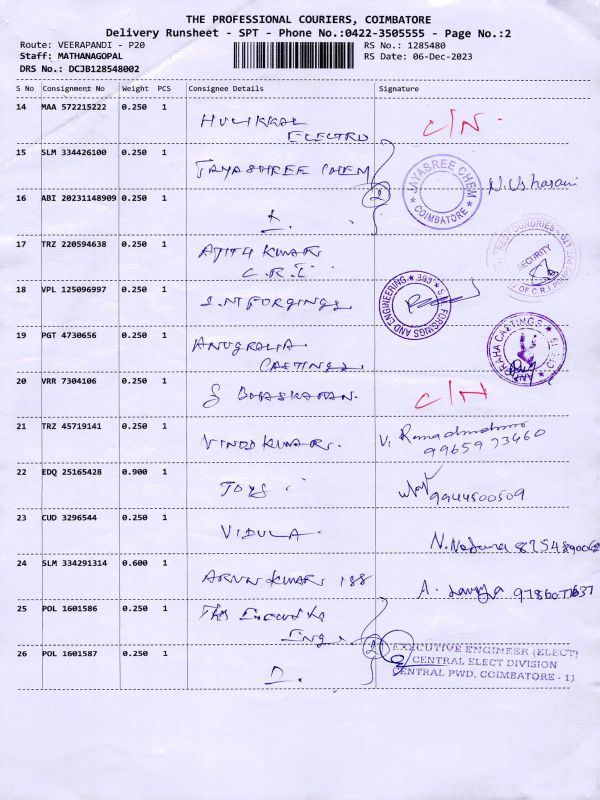 THE PROFESSIONAL COURIERS, COIMBATORE
Delivery Runsheet - SPT - Phone No.:0422-3505555 - Page No.:2
Route: VEERAPANDI - P20
RS No.: 1285480
Staff: MATHANAGOPAL
RS Date: 06-Dec-2023
DRS No.: DCJB128548002
S No Consignment No Weight PCS Consignee Details Signature
14 MAA 572215222 0.250 1 HULIKKAL C/N.
ELECTRO
15 SLM 334426100 0.250 1 JAYASHREE CHEM JAYASREE CHEM
* COIMBATORE *
16 ABI 20231148909 0.250 1 2
17 TRZ 220594638 0.250 1 AJITH KUMAR
C.R.I. SECURITY
18 VPL 125096997 0.250 1 S.N FORGINGS FORGINGS AND ENGINEERING
19 PGT 4730656 0.250 1 ANUGRAHA
CASTINGS.
20 VRR 7304106 0.250 1 S BHASKARAN. C/N
21 TRZ 45719141 0.250 1 VINOD KUMAR. V.
99659 73460
22 EDQ 25165428 0.900 1 TOYS 9944500509
23 CUD 3296544 0.250 1 VIDULA.
24 SLM 334291314 0.600 1 ARUN KUMAR 188 A.
25 POL 1601586 0.250 1 The Executive
Eng. 2 EXECUTIVE ENGINEER (ELECT)
26 POL 1601587 0.250 1 CENTRAL ELECT DIVISION
CENTRAL PWD, COIMBATORE - 11